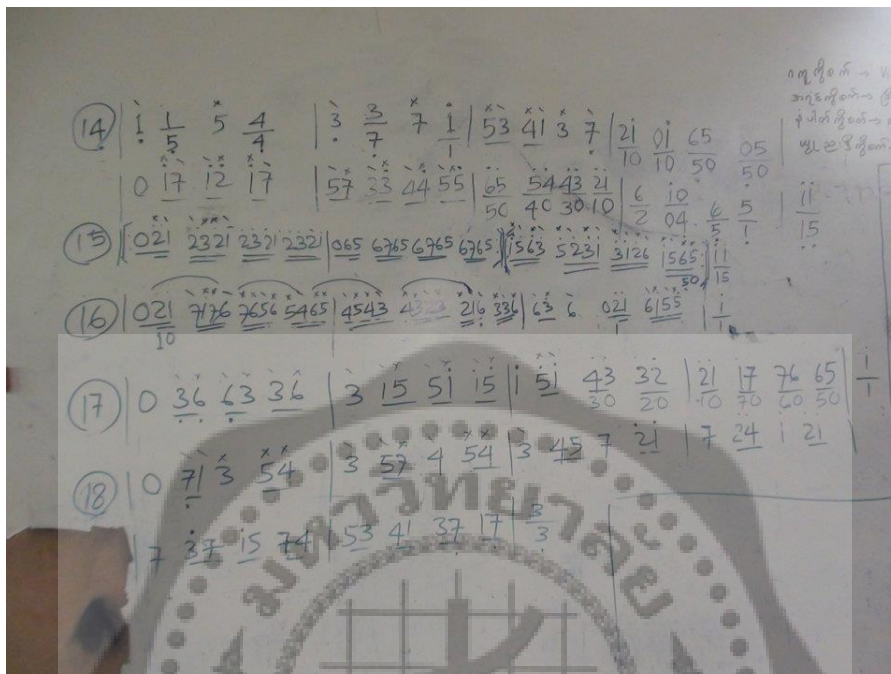 14 | 1 1/5 5 4/4 | 3 3/7 7 1/1 | 53 41 3 7 | 21/10 01/10 65/50 05/50 |
0 17 12 17 | 57 33 44 55 | 65/50 54/40 43/30 21/10 | 6/2 10/04 6/5 5/1 | 11/15
15 | 021 2321 2321 2321 | 065 6765 6765 6765 | 1563 5231 3126 1565/50 | 11/15
16 | 021/10 7176 7656 5465 | 4543 4323 216 336 | 63 6 021/1 6155 | 1/1
17 | 0 36 63 36 | 3 15 51 15 | 1 51 43/30 32/20 | 21/10 17/70 76/60 65/50 | 1/1
18 | 0 71 3 54 | 3 57 4 54 | 3 45 7 21 | 7 24 1 21 |
| 7 37 15 74 | 53 41 37 17 | 3/3
มหาวิทยาลัย